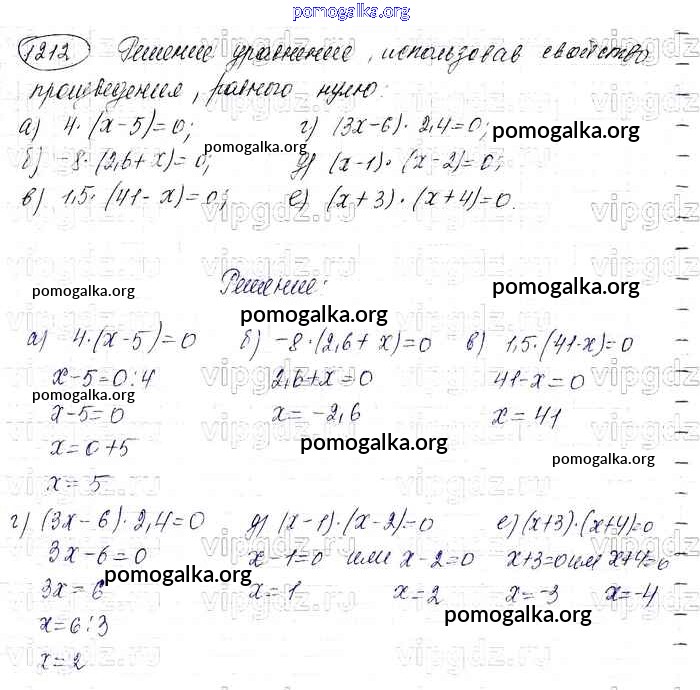 pomogalka.org
1212 Решение уравнение, использовав свойство
произведения, равного нулю:
а) 4·(x-5)=0; г) (3x-6)·2,4=0; pomogalka.org
б) -8·(2,6+x)=0; pomogalka.org д) (x-1)·(x-2)=0;
в) 1,5·(41-x)=0; е) (x+3)·(x+4)=0.
vipgdz.ru
Решение:
pomogalka.org pomogalka.org pomogalka.org
а) 4·(x-5)=0 б) -8·(2,6+x)=0 в) 1,5·(41-x)=0
x-5=0:4 2,6+x=0 41-x=0
pomogalka.org
x-5=0 x=-2,6 x=41
x=0+5 pomogalka.org pomogalka.org
x=5
г) (3x-6)·2,4=0 д) (x-1)·(x-2)=0 е) (x+3)·(x+4)=0
3x-6=0 x-1=0 или x-2=0 x+3=0 или x+4=0
pomogalka.org
3x=6 x=1 x=2 x=-3 x=-4
pomogalka.org
x=6:3
x=2